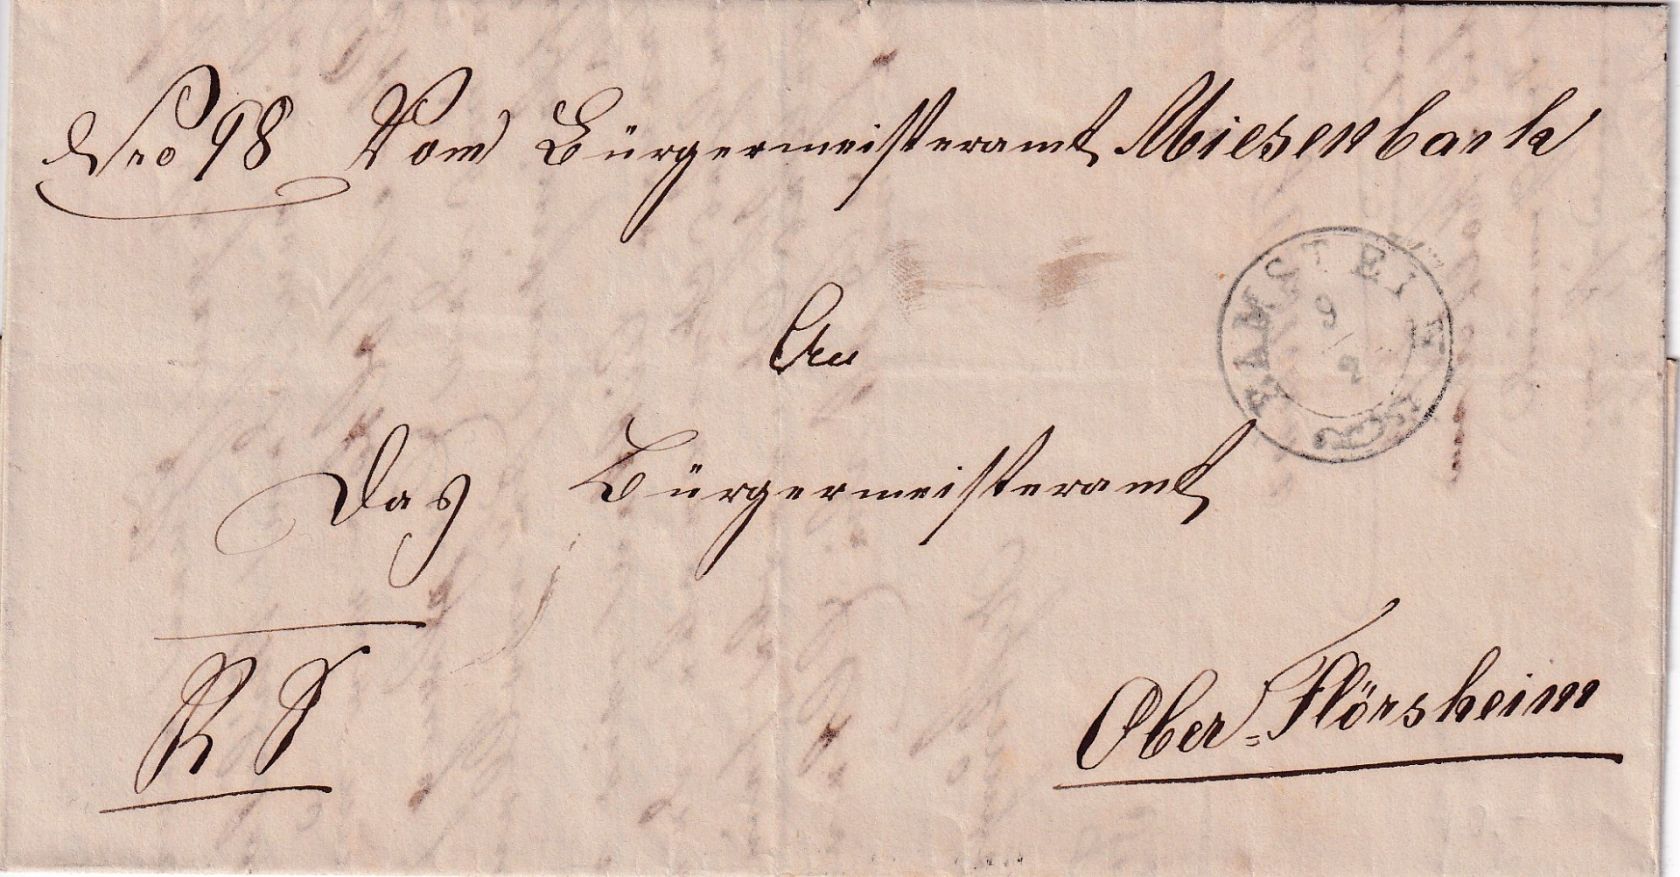 Nro 98 Vom Bürgermeisteramt Miesenbach
RAMSTEIN
9
2
An
Das Bürgermeisteramt
R S
Ober-Flörsheim